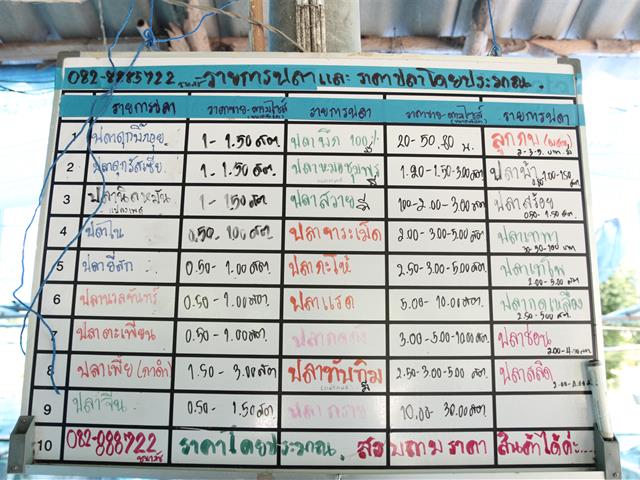 082-8885722 รายการปลาและ ราคาปลาโดยประมาณ.
รายการปลา ราคาขาย-ตามไซส์ รายการปลา ราคาขาย-ตามไซส์ รายการปลา
1 ปลาดุกบิ๊กอุย 1-1.50 สต. ปลานิล 100% 20-50.80 บ. ลูกกบ
2 ปลาดุกรัสเซีย 1.1.50 สต. ปลาหมอชุมพร 1.20-1.50-3.00 สต. ปลาบ้า
3 ปลานิลหมัน แปลงเพศ 1-1.50 สต. ปลาสวาย 1.00-2.00-3.00 สต. ปลาสร้อย 0.50-1.50 สต.
4 ปลาไน 0.50-1.00 สต. ปลาจาระเม็ด 2.00-3.00-5.00 สต. ปลาเทพา
5 ปลายี่สก 0.50-1.00 สต. ปลาตะโก้ 2.50-3.00-5.00 สต. ปลาเทโพ 2.00-5.00 สต.
6 ปลานวลจันทร์ 0.50-1.00 สต. ปลาแรด 5.00-10.00 สต. ปลากดเหลือง 2.50-5.00 สต.
7 ปลาตะเพียน 0.50-1.00 สต. 3.00-5.00-10.00 สต. ปลาช่อน 2.00-4.00
8 ปลาเพี้ย (กาดำ) 1.50-3.00 สต. ปลาทับทิม 2.50-3.00-5.00 สต. ปลาสลิด
9 ปลาจีน 0.50-1.50 สต. ปลากราย 10.00-30.00 สต.
10 082-8885722 ราคาโดยประมาณ. สอบถามราคา สินค้าได้ค่ะ....